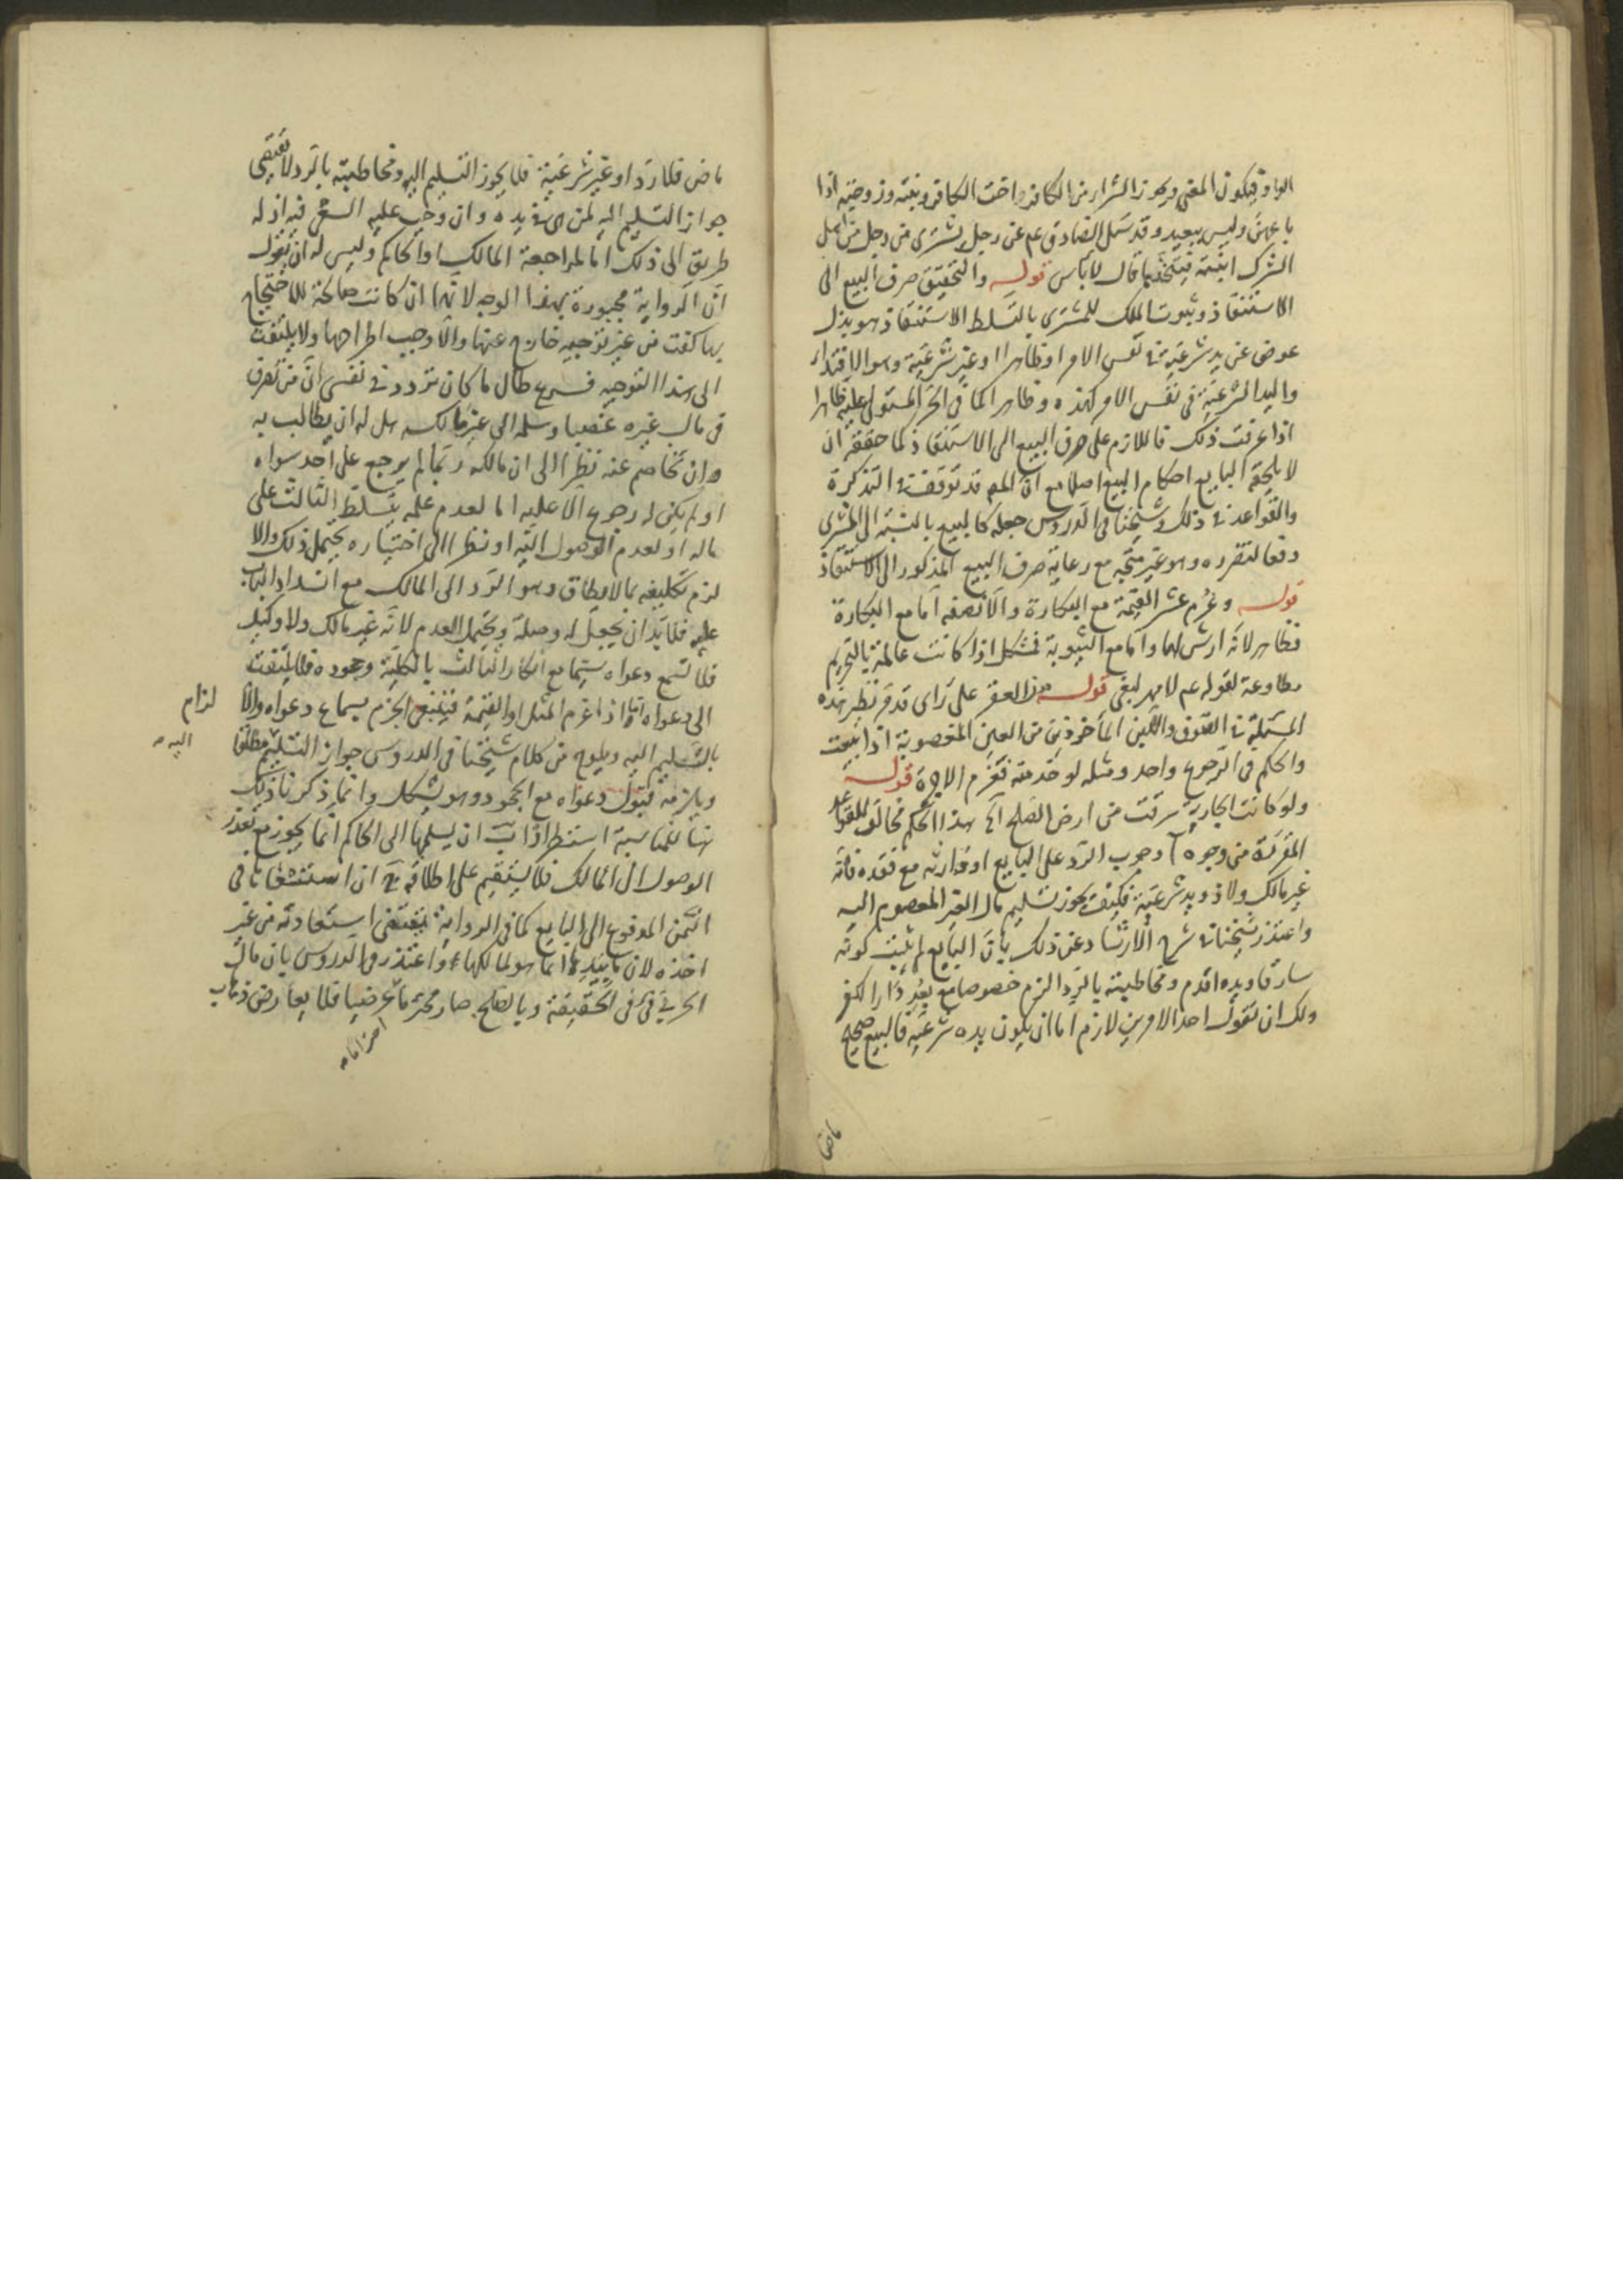 الواو فيكون المعنى ويجوز الشراء من الكافر واخت الكافر وبنته وزوجته اذا
باعهن وليس ببعيد وقد سئل الصادق عم عن رجل يشترى من رجل من اهل
الشرك ابنته فيتخذها قال لا باس قوله والتحقيق صرف البيع الى
الاستنقاذ وثبوت الملك للمشترى بالتسلط الاستنقاذ هو بذل
عوض عن يد شرعية فى نفس الامر او ظاهرا او غير شرعية وهو الافتداء
واليد الشرعية فى نفس الامر كهذه وظاهرا كما فى الحر المستولى عليه ظاهرا
اذا عرفت ذلك فاللازم على صرف البيع الى الاستنقاذ كما حققه ان
لا يلحقه البايع احكام البيع اصلا مع ان المص قد توقف فى التذكرة
والقواعد فى ذلك وشيخنا فى الدروس جعله كالبيع بالنسبة الى المشترى
دفعا لتضرره وهو غير متجه مع رعاية صرف البيع المذكور الى الاستنقاذ
قوله وغرم عشر القيمة مع البكارة والا نصفه اما مع البكارة
فظاهر لانه ارش لها واما مع الثيبوبة فمشكل اذا كانت عالمة بالتحريم
مطاوعة لقوله عم لا مهر لبغى قوله من العقر على راى قد مر نظير هذه
المسئلة فى الصوف واللبن الماخوذين من العين المغصوبة اذا بيعت
والحكم فى الرجوع واحد ومثله لو خدمته فغرم الاجرة قوله
ولو كانت الجارية سرقت من ارض الصلح آه هذا الحكم مخالف للقواعد
المقررة من وجوه آ وجوب الرد على البايع او وارثه مع فقده فانه
غير مالك ولا ذو يد شرعية فكيف يجوز تسليم مال الغير المعصوم اليه
واعتذر شيخنا فى شرح الارشاد عن ذلك بان البايع لم يثبت كونه
سارقا ويده اقدم ومخاطبته بالرد الزم خصوصا مع بعد دار الكفر
ولك ان تقول احد الامرين لازم اما ان يكون يده شرعية فالبيع صحيح
ماض
ماض فلا رد او غير شرعية فلا يجوز التسليم اليه ومخاطبته بالرد لا تقتضى
جواز التسليم اليه لمن هى فى يده وان وجب عليه السعى فيه اذ له
طريق الى ذلك اما لمراجعة المالك او الحاكم وليس له ان يقول
ان الرواية مجبورة بهذا الوجه لانها ان كانت صالحة للاحتجاج
بها كفت من غير توجيه خارج عنها والا وجب اطراحها ولا يلتفت
الى هذا التوجيه فرع طال ما كان تردد فى نفسى ان من تصرف
فى مال غيره غصبا وسلمه الى غير مالكه هل له ان يطالب به
وان تخاصم عنه نظرا الى ان مالكه ربما لم يرجع على احد سواه
او لم يكن له رجوع الا عليه اما لعدم علمه بتسلط الثالث على
ماله او لعدم الوصول اليه او نظرا الى اختياره يحتمل ذلك والا
لزم تكليفه بما لا يطاق وهو الرد الى المالك مع انسداد الباب
عليه فلا بد ان يجعل له وصلة ويحتمل العدم لانه غير مالك ولا وكيل
فلا تسمع دعواه سيما مع انكار الثالث بالكلية وجحوده فلا يلتفت
الى دعواه اما اذا غرم المثل او القيمة فينبغى الجزم بسماع دعواه والا لزام
بالتسليم اليه ويلوح من كلام شيخنا فى الدروس جواز التسليم مطلقا اليه
ويلزمه قبول دعواه مع الجحود وهو مشكل وانما ذكرنا ذلك
هنا للمناسبة استطرادا ب ان يسلمها الى الحاكم انما يجوز مع تعذر
الوصول الى المالك فلا يستقيم على اطلاقه ج ان استسعاءها فى
الثمن المدفوع الى البايع كما فى الرواية يقتضى استعادته من غير
اخذه لان ما بيدها انما هو لمالكها واعتذر فى الدروس بان مال
الحربى فئ فى الحقيقة وبالصلح صار محترما عرضيا فلا يعارض ذهاب
احترامه